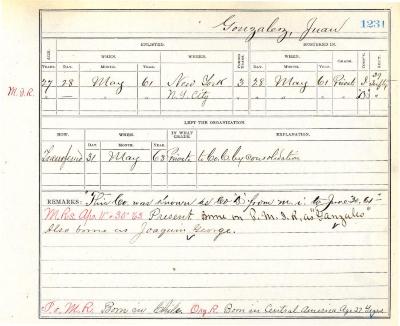 Gonzalez, Juan 1231
ENLISTED. MUSTERED IN.
AGE. WHEN. WHERE. PERIOD YEARS. WHEN. GRADE. CO. REG'T.
YEARS. DAY. MONTH. YEAR. DAY. MONTH. YEAR.
27 28 May 61 New York 3 28 May 61 Privt I 39
M.I.R. " — " " N.Y. City " " " " " "D" "
LEFT THE ORGANIZATION.
HOW. WHEN. IN WHAT GRADE. EXPLANATION.
DAY. MONTH. YEAR.
Transferred 31 May 63 Private to Co. C by consolidation
" " " "
REMARKS: "This Co. was known as Co "D" from m. i. to June 30, 61"
M.R.s Apr. 10 & 30 '63 Present Borne on P. M. I. R. as "Gonzales"
Also borne as Joaquin George.
P.o. M.R. Born in Chile Org. R. Born in Central America Age 27 Years